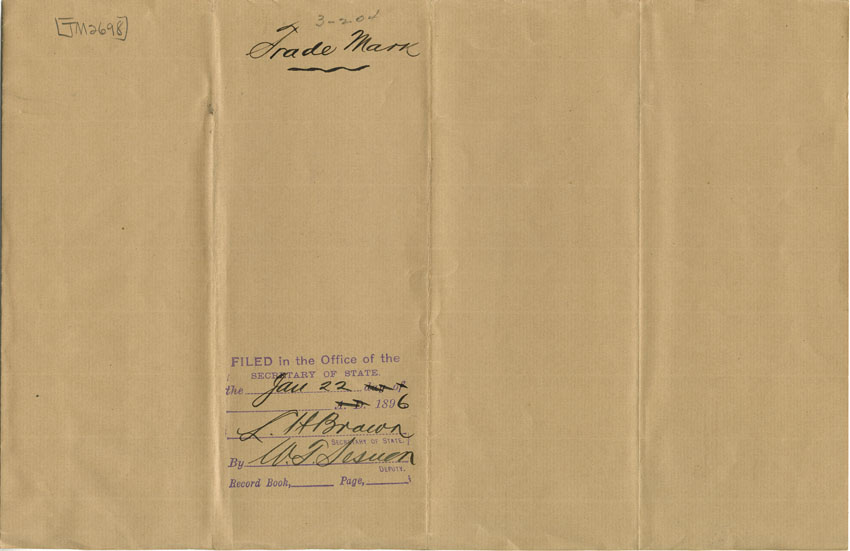 [TM2698]
3-204
Trade Mark
FILED in the Office of the
SECRETARY OF STATE.
the Jan 22 day of
A. D. 1896
L. H Brown
SECRETARY OF STATE.
By W. T.
DEPUTY.
Record Book, Page,